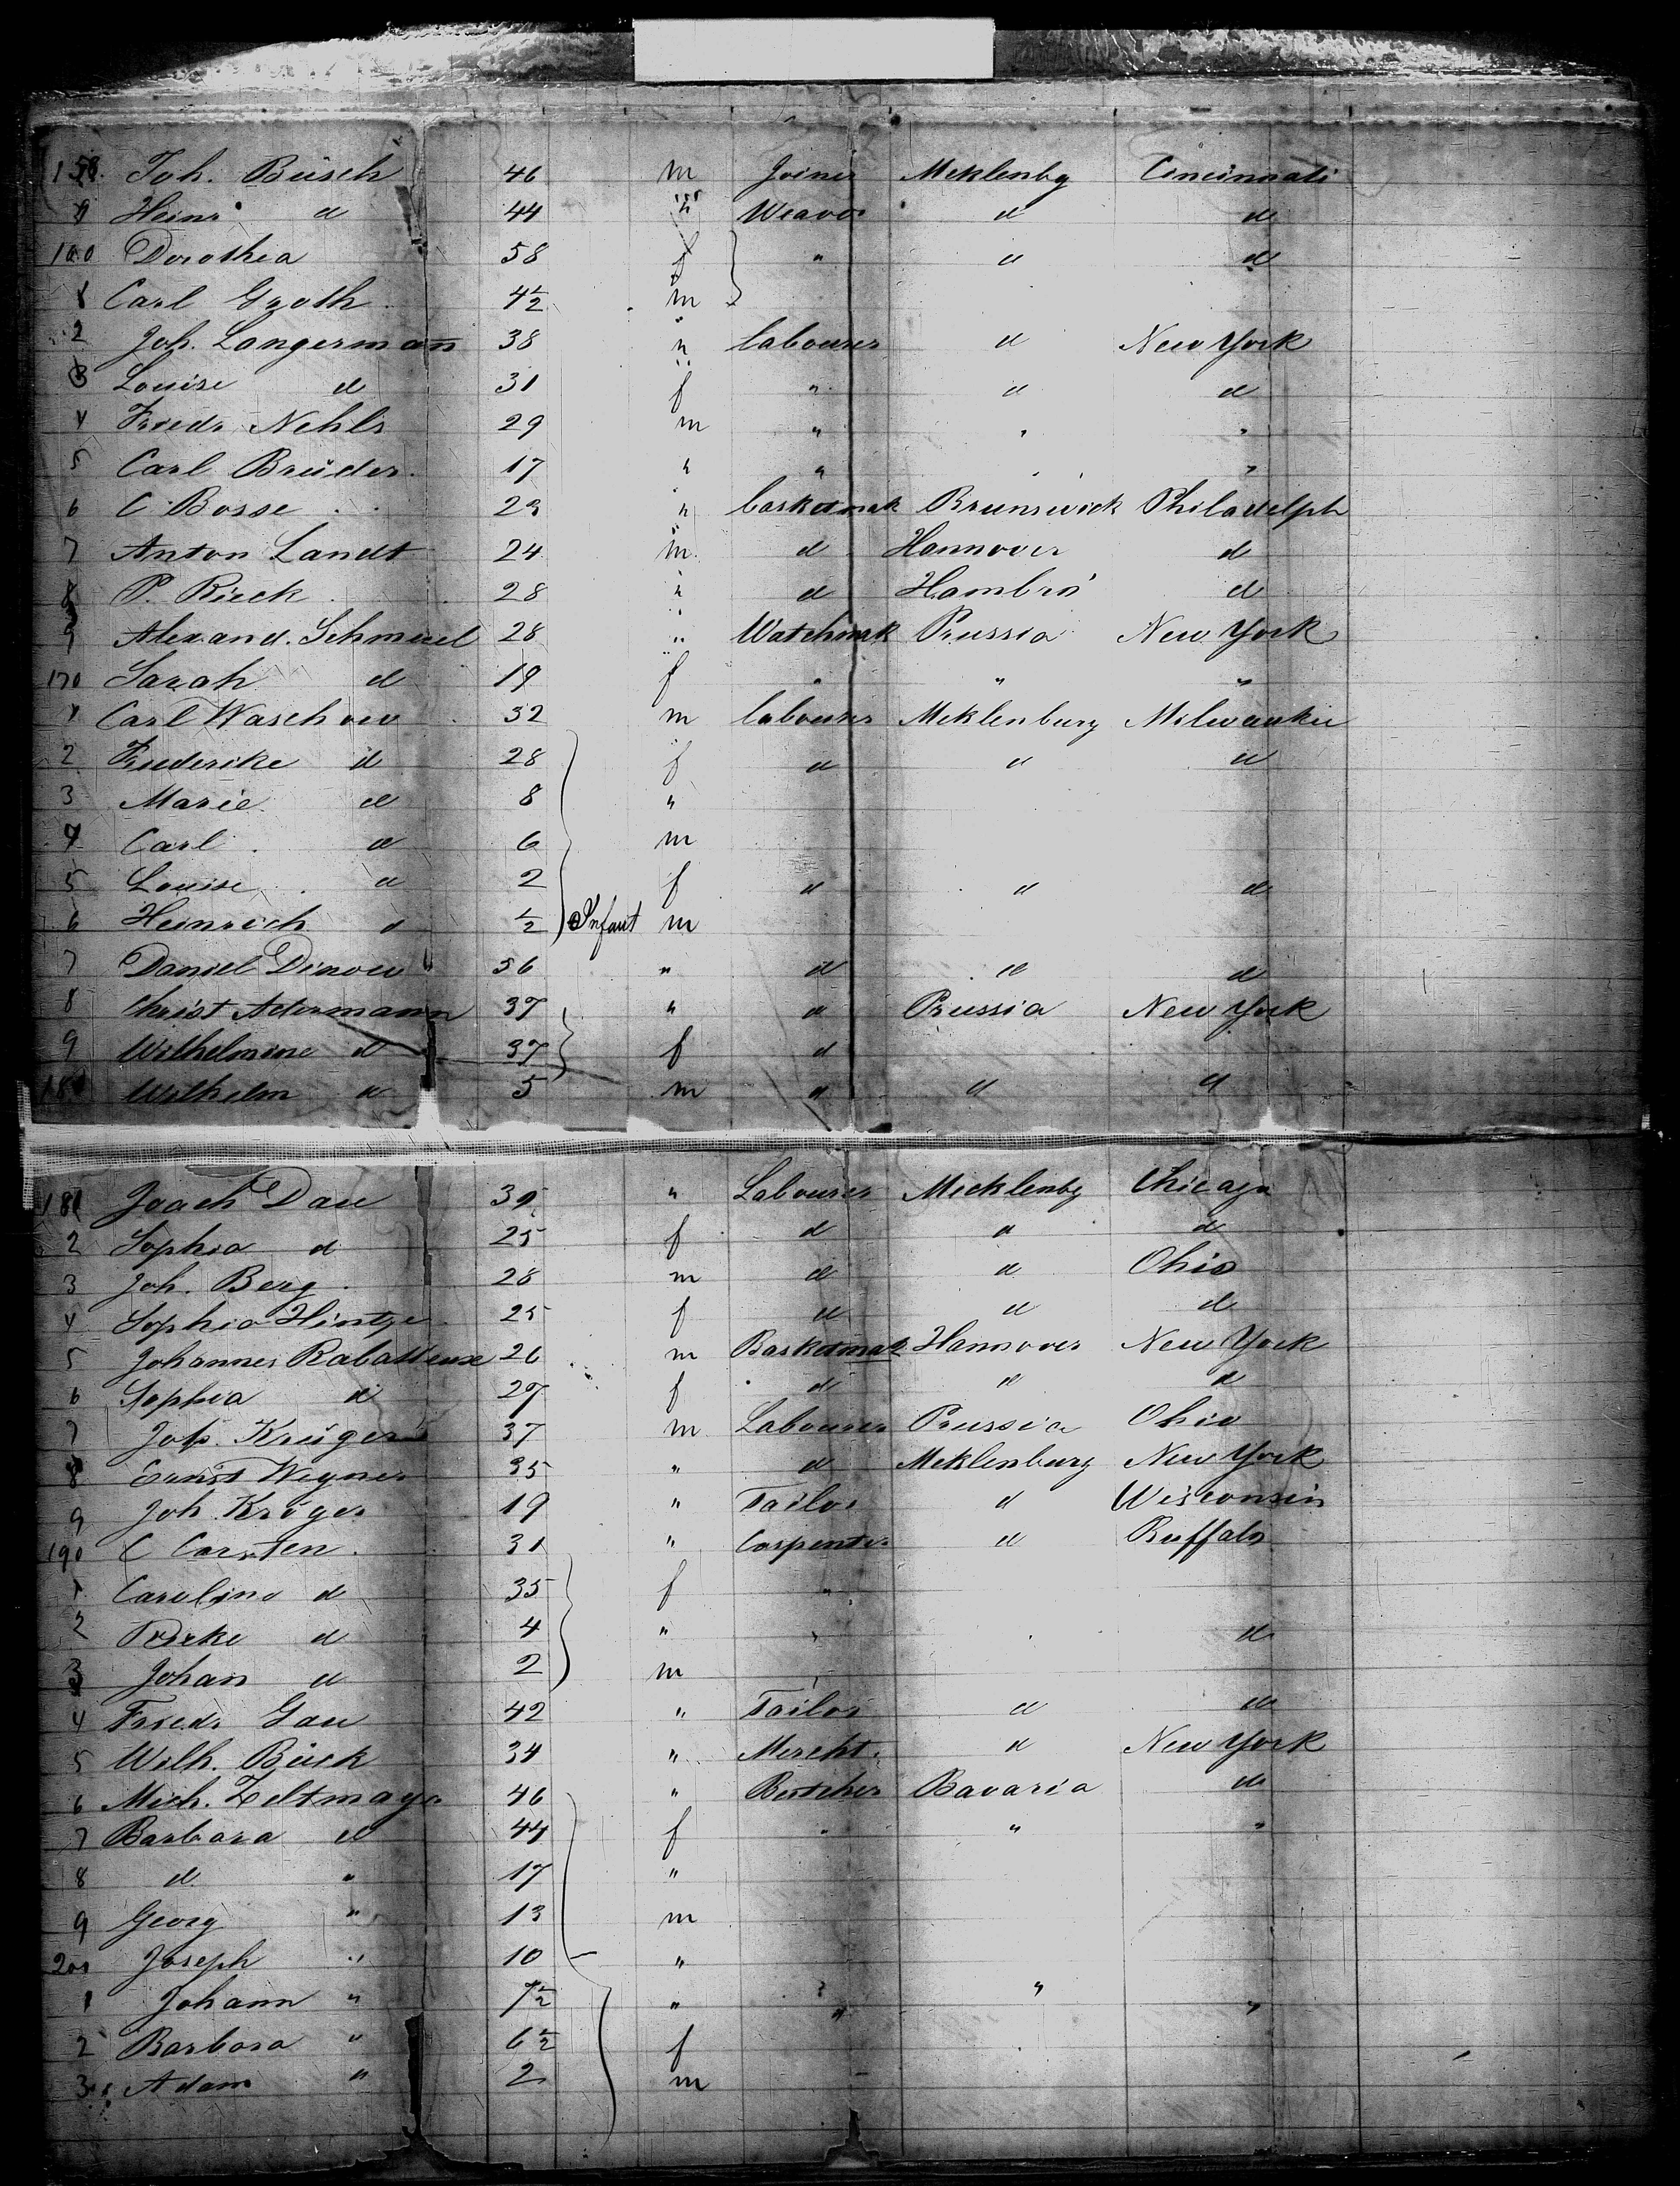 158. Joh. Büsch 46 m Joiner Meklenbg Cincinnati
9 Heinr d 44 " Weaver d d
160 Dorothea 58 f " d d
1 Carl Groth 4½ m
2 Joh. Langermann 38 " labourer d New York
3 Louise d 31 f " d d
4 Friedr Nehls 29 m " " "
5 Carl Brüder 17 " " " "
6 C. Bosse 23 " basketmak Brunswick Philadelph
7 Anton Landt 24 m d Hannover d
8 P. Rieck 28 " d Hambro' d
9 Alexand. Schmuel 28 " Watchmak Prussia New York
170 Sarah d 19 f " " "
1 Carl Waschow 32 m labourer Meklenburg Milwaukie
2 Friederike d 28 f d d d
3 Marie d 8 "
4 Carl d 6 m
5 Louise d 2 f d d d
6 Heinrich d ½ Infant m
7 Daniel Dinow 56 " d d d
8 Christ Adermann 37 " d Prussia New York
9 Wilhelmine d 37 f d
180 Wilhelm d 5 m d d d
181 Joach Dau 35 " Labourer Mecklenbg Chicago
2 Sophia d 25 f d d d
3 Joh. Berg 28 m d d Ohio
4 Sophia Hintze 25 f d d d
5 Johannes 26 m Basketmak Hannover New York
6 Sophia d 27 f d d d
7 Joh. Krüger 37 m Labourer Prussia Ohio
8 Ernst Wegner 35 " d Meklenburg New York
9 Joh. Kröger 19 " Tailor d Wisconsin
190 C Carsten 31 " Carpenter d Buffalo
1 Carolina d 35 f "
2 d 4 " " " d
3 Johan d 2 m "
4 Friedr Gau 42 " Tailor d d
5 Wilh. Bück 34 " Mercht. d New York
6 Mich. Zeltmayr 46 " Butcher Bavaria d
7 Barbara d 44 f " " "
8 d " 17 "
9 Georg " 13 m
200 Joseph " 10 "
1 Johann " 7½ " " " "
2 Barbara " 6½ f
3 Adam " 2 m